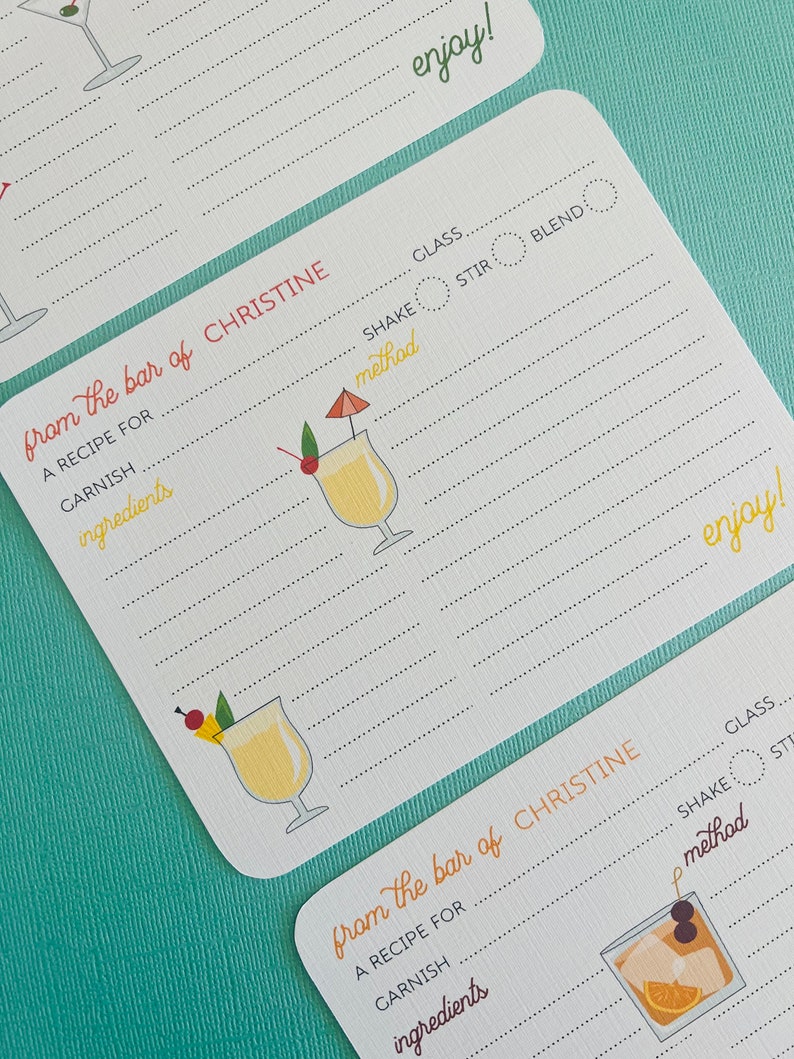 enjoy!
from the bar of CHRISTINE
A RECIPE FOR GLASS
GARNISH SHAKE STIR BLEND
ingredients method
enjoy!
from the bar of CHRISTINE
A RECIPE FOR GLASS
GARNISH SHAKE STI
ingredients method